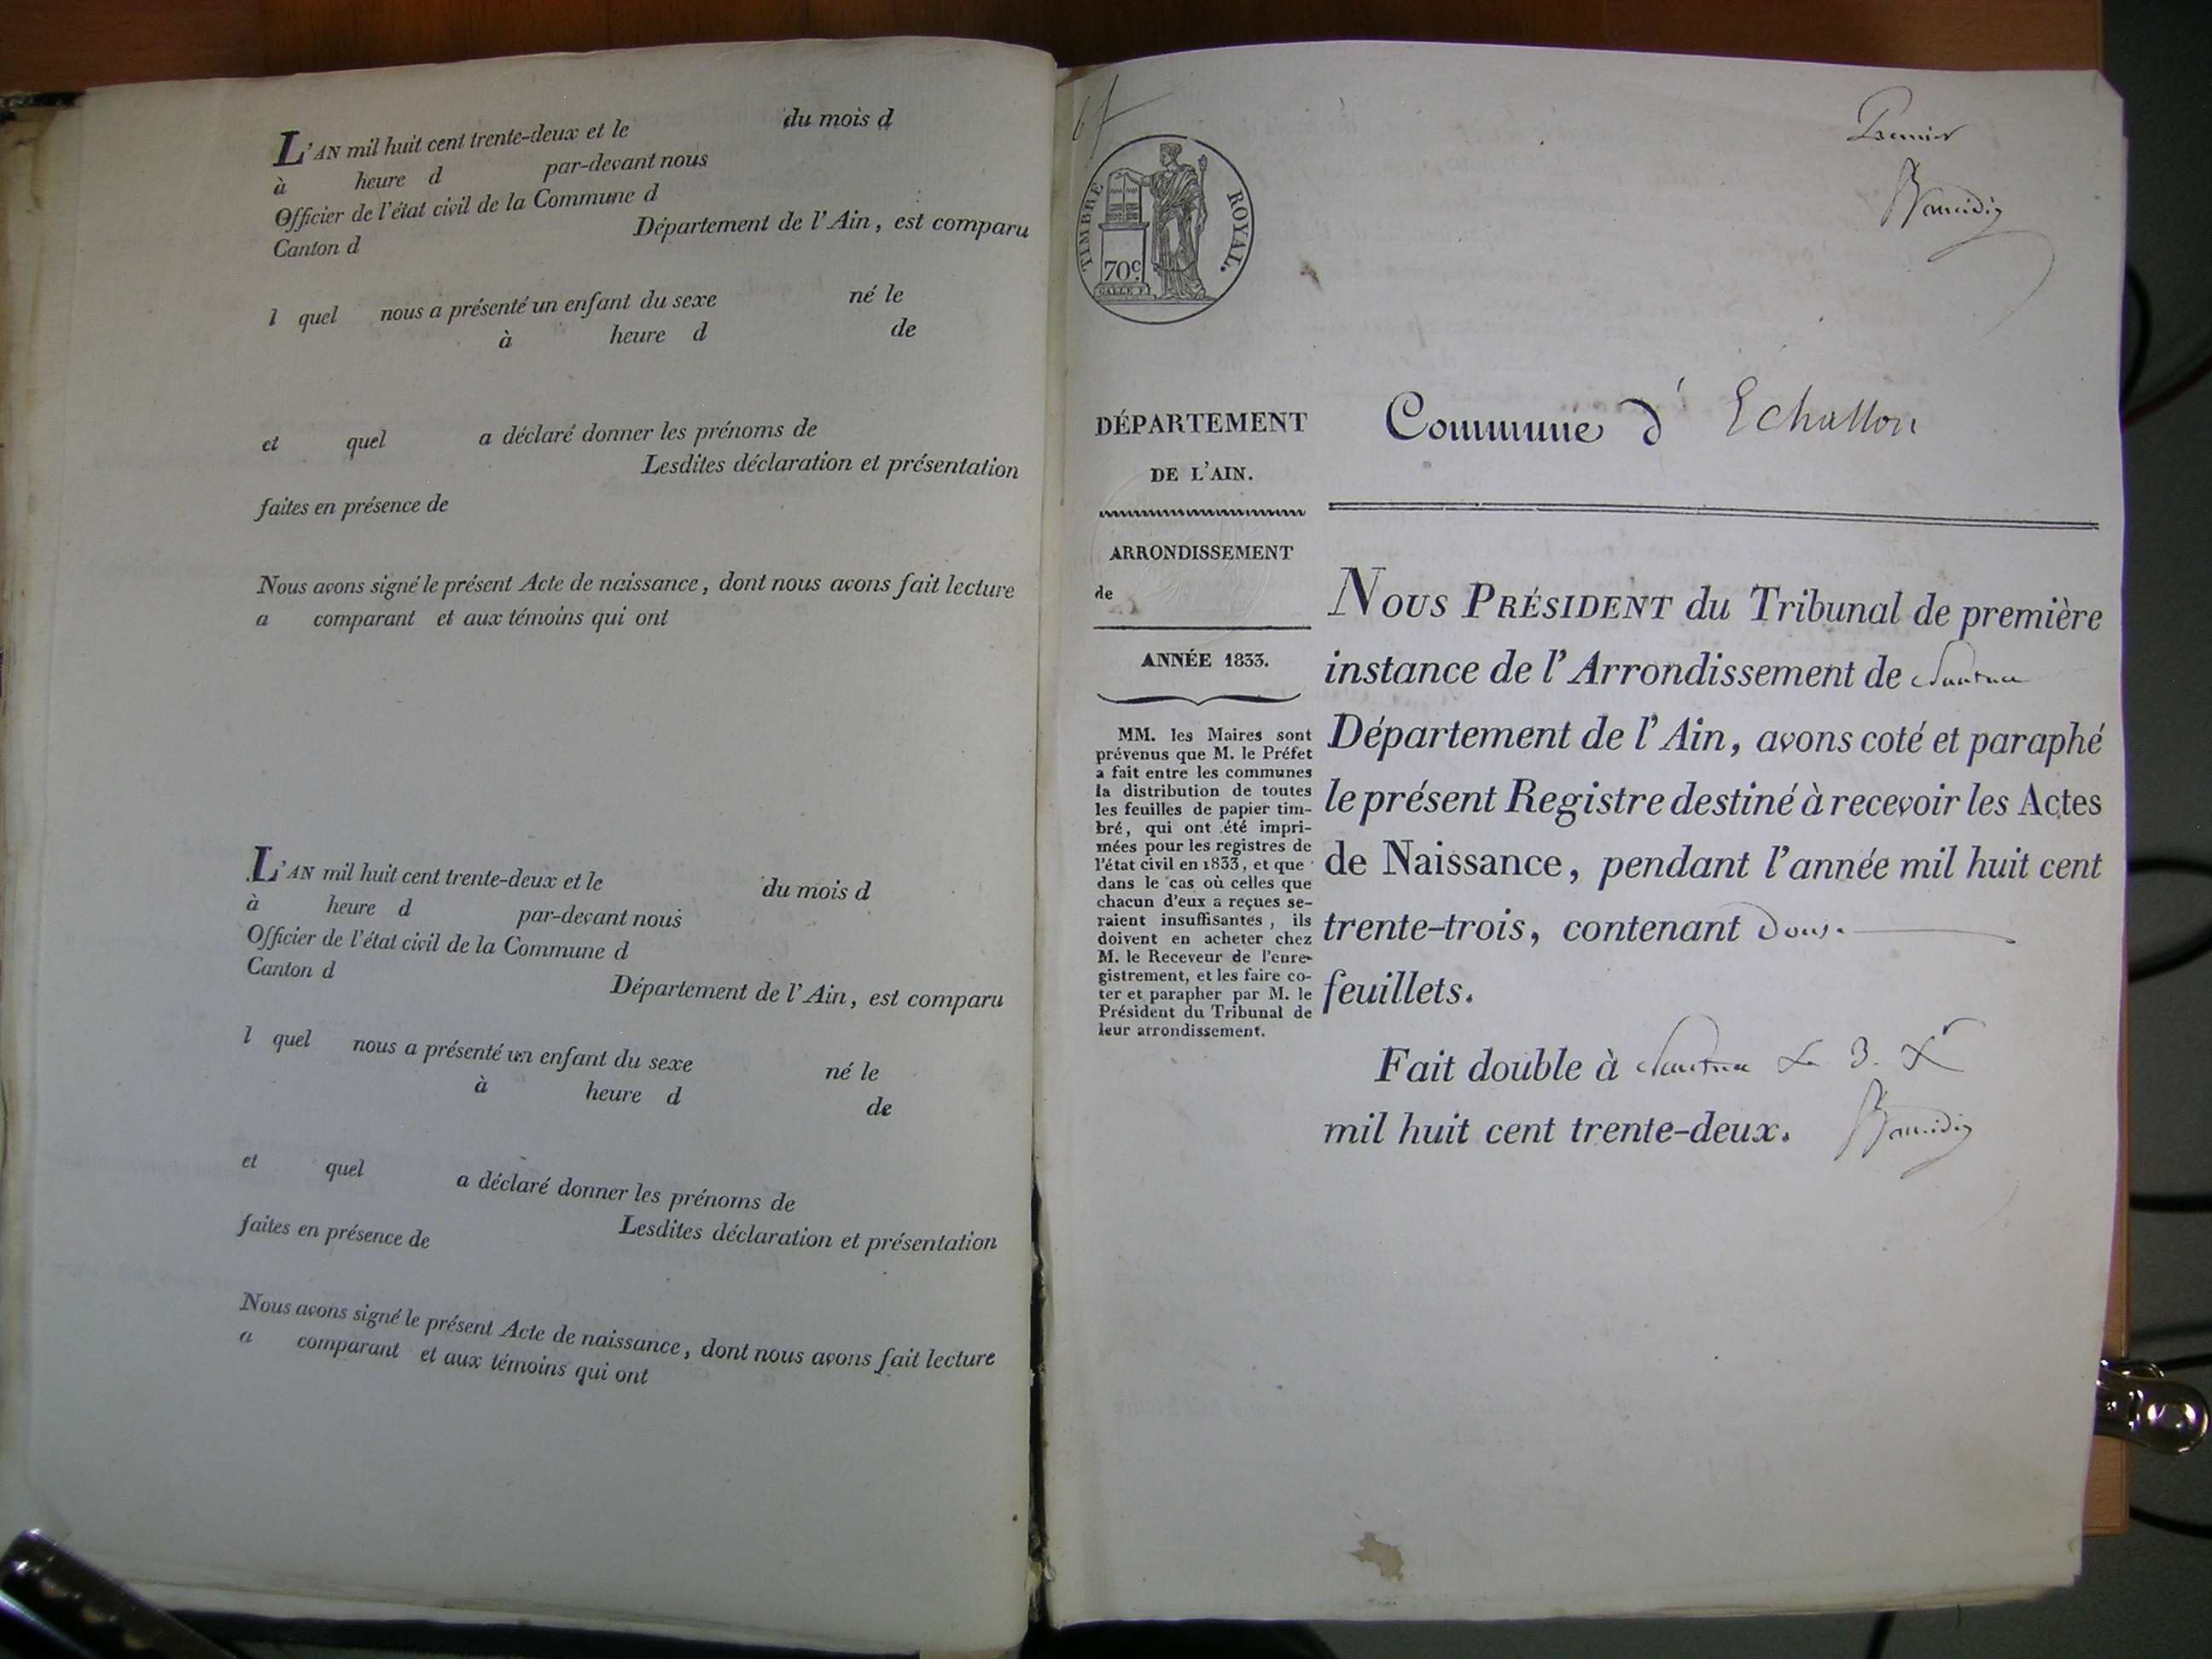 L'AN mil huit cent trente-deux et le du mois d
à heure d par-devant nous
Officier de l'état civil de la Commune d
Canton d Département de l'Ain, est comparu
l quel nous a présenté un enfant du sexe né le
à heure d de
et quel a déclaré donner les prénoms de
Lesdites déclaration et présentation
faites en présence de
Nous avons signé le présent Acte de naissance, dont nous avons fait lecture
a comparant et aux témoins qui ont
L'AN mil huit cent trente-deux et le du mois d
à heure d par-devant nous
Officier de l'état civil de la Commune d
Canton d Département de l'Ain, est comparu
l quel nous a présenté un enfant du sexe né le
à heure d de
et quel a déclaré donner les prénoms de
Lesdites déclaration et présentation
faites en présence de
Nous avons signé le présent Acte de naissance, dont nous avons fait lecture
a comparant et aux témoins qui ont
Premier
TIMBRE ROYAL.
70c.
DÉPARTEMENT
DE L'AIN.
ARRONDISSEMENT
de
ANNÉE 1833.
MM. les Maires sont
prévenus que M. le Préfet
a fait entre les communes
la distribution de toutes
les feuilles de papier tim-
bré, qui ont été impri-
mées pour les registres de
l'état civil en 1833, et que
dans le cas où celles que
chacun d'eux a reçues se-
raient insuffisantes, ils
doivent en acheter chez
M. le Receveur de l'enre-
gistrement, et les faire co-
ter et parapher par M. le
Président du Tribunal de
leur arrondissement.
Commune d' Echallon
NOUS PRÉSIDENT du Tribunal de première
instance de l'Arrondissement de Nantua
Département de l'Ain, avons coté et paraphé
le présent Registre destiné à recevoir les Actes
de Naissance, pendant l'année mil huit cent
trente-trois, contenant douze
feuillets.
Fait double à Nantua le 3. Xr
mil huit cent trente-deux.